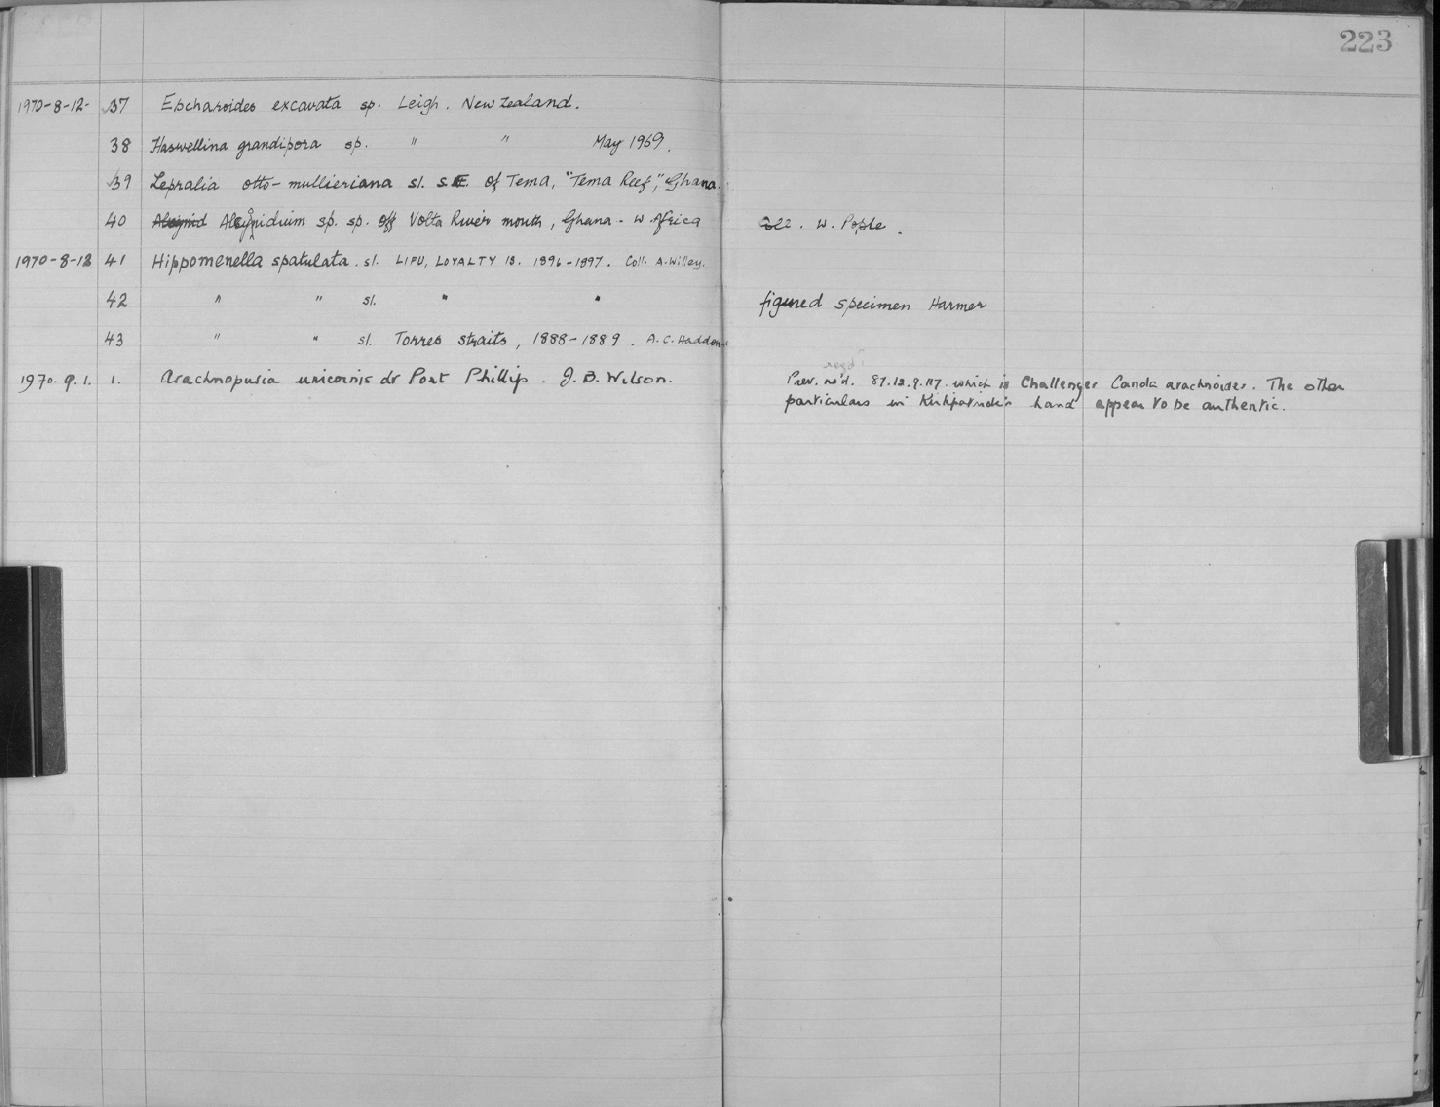 223
1970-8-12- 37 Escharoides excavata sp. Leigh. New Zealand.
38 Haswellina grandipora sp. " " May 1969.
39 Lepralia otto-mullieriana sl. S.E. of Tema, "Tema Reef", Ghana.
40 Alcynidium sp. sp. off Volta River mouth, Ghana - W. Africa coll. W. Pople.
1970-8-12 41 Hippomenella spatulata. sl. LIFU, LOYALTY IS. 1896-1897. Coll. A. Willey.
42 " " sl. " " figured specimen Harmer
43 " " sl. Torres Straits, 1888-1889. A.C. Haddon
regd?
1970.9.1. 1. Arachnopusia unicornis dr Port Phillip. J. B. Wilson. Prev. re'd. 87.12.9.117. which is Challenger Canda arachnoides. The other
particulars in Kirkpatrick's hand appear to be authentic.